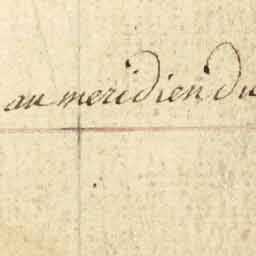 au meridien du